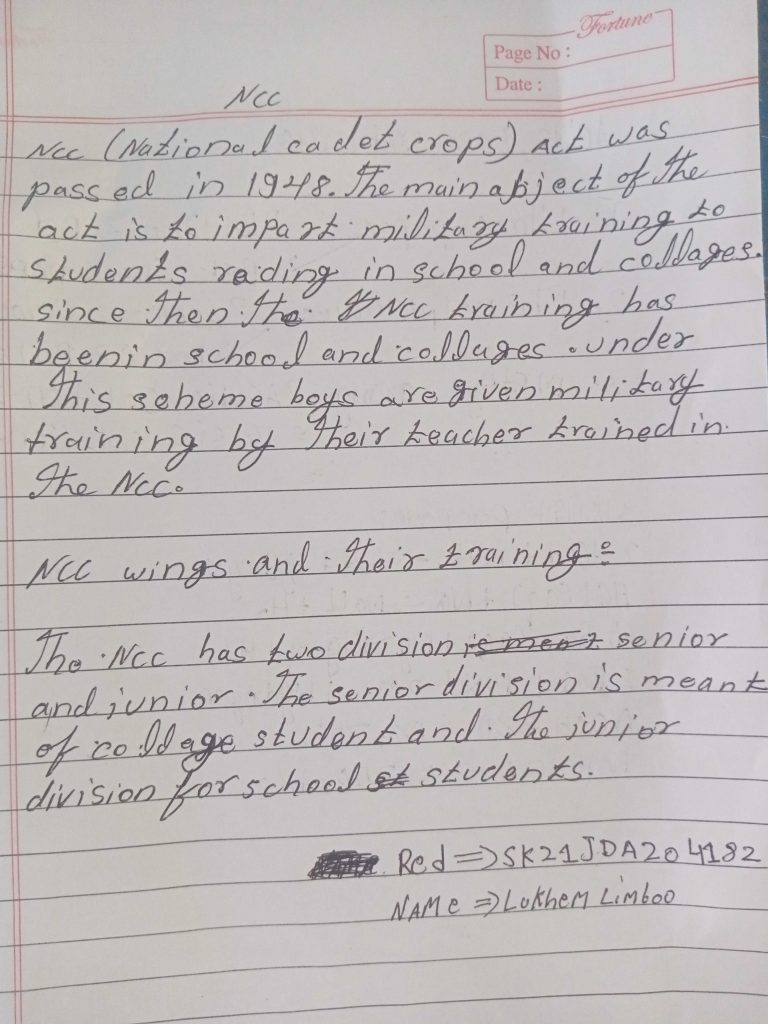 Fortune
Page No :
Date :
NCC
NCC (National cadet crops) Act was
passed in 1948. The main abject of the
act is to impart military training to
students reading in school and collages.
since then the NCC training has
beenin school and collages . under
This scheme boys are given military
training by Their teacher trained in
The NCC.
NCC wings and Their training :
The NCC has two division is ment senior
and junior . The senior division is meant
of collage student and The junior
division for school st students.
Red => SK21JDA204182
NAMe => LukheM LiMboo